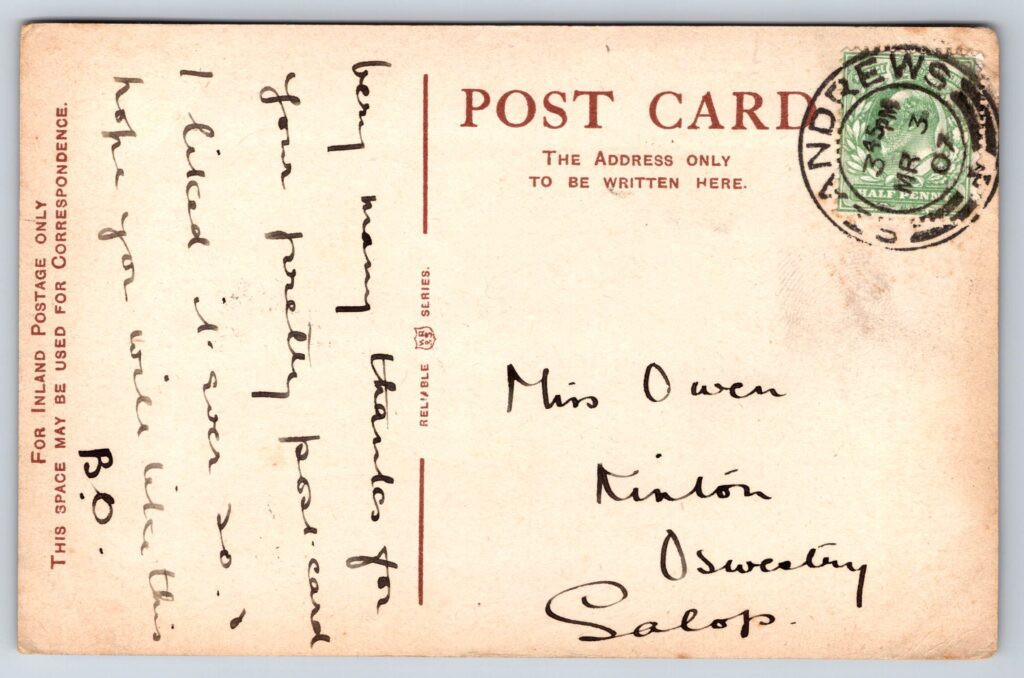 FOR INLAND POSTAGE ONLY
THIS SPACE MAY BE USED FOR CORRESPONDENCE.
very many thanks for
your pretty post-card
I liked it ever so. I
hope you will like this
B.O.
RELIABLE WR&S SERIES.
POST CARD
THE ADDRESS ONLY
TO BE WRITTEN HERE.
ST ANDREWS
3 45 PM
MR 3
07
HALF PENNY
Miss Owen
Kinton
Oswestry
Salop.